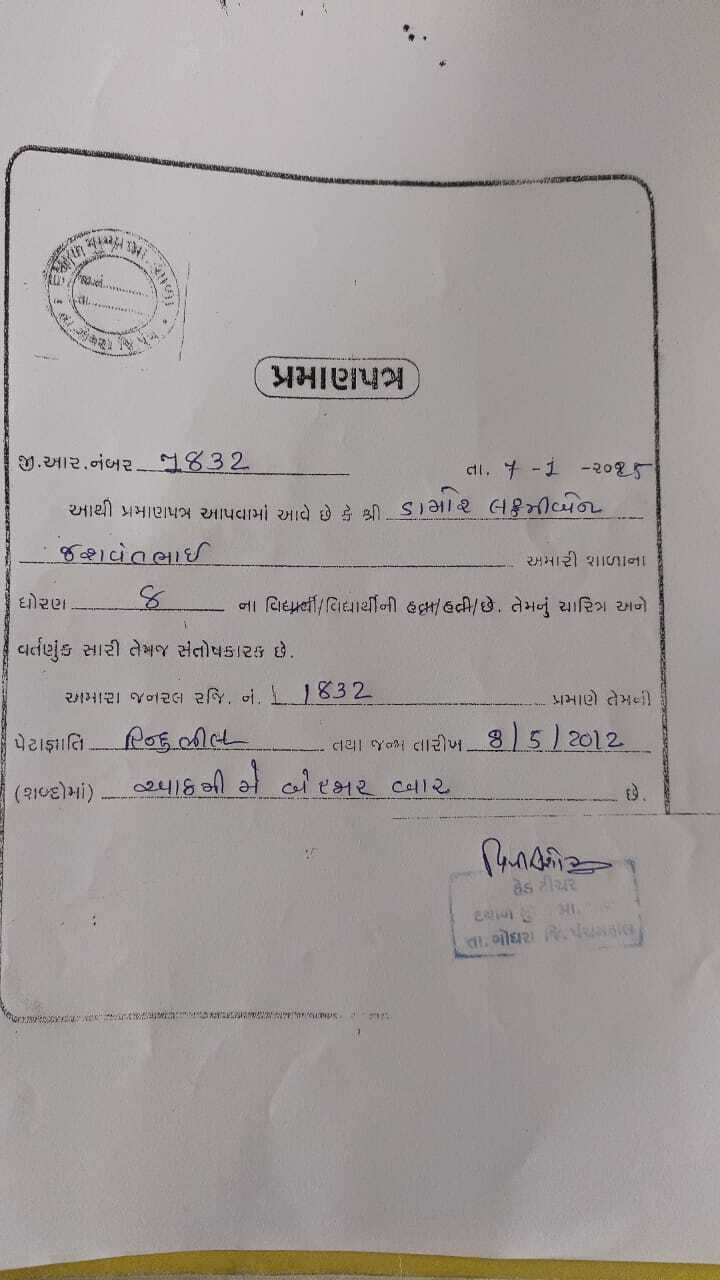 પ્રમાણપત્ર
જી.આર.નંબર 1832 તા. 7-1-૨૦25
આથી પ્રમાણપત્ર આપવામાં આવે છે કે શ્રી ડામોર લક્ષ્મીબેન
જશવંતભાઈ અમારી શાળાના
ધોરણ 8 ના વિદ્યાર્થી/વિદ્યાર્થીની હતા/હતી/છે. તેમનું ચારિત્ર અને
વર્તણુંક સારી તેમજ સંતોષકારક છે.
અમારા જનરલ રજિ. નં. 1832 પ્રમાણે તેમની
પેટાજ્ઞાતિ હિન્દુ ભીલ તથા જન્મ તારીખ 8/5/2012
(શબ્દોમાં) આઠમી મે બે હજાર બાર છે.
હેડ ટીચર
દયાળ પ્રા.
તા.ગોધરા જિ.પંચમહાલ